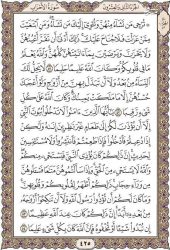 الجزء الثاني والعشرون سورة الأحزاب
۞ تُرْجِي مَن تَشَاءُ مِنْهُنَّ وَتُـْٔوِي إِلَيْكَ مَن تَشَاءُ وَمَنِ ٱبْتَغَيْتَ
مِمَّنْ عَزَلْتَ فَلَا جُنَاحَ عَلَيْكَ ذَٰلِكَ أَدْنَىٰ أَن تَقَرَّ أَعْيُنُهُنَّ
وَلَا يَحْزَنَّ وَيَرْضَيْنَ بِمَا ءَاتَيْتَهُنَّ كُلُّهُنَّ وَٱللَّهُ يَعْلَمُ
مَا فِي قُلُوبِكُمْ وَكَانَ ٱللَّهُ عَلِيمًا حَلِيمًا ٥١ لَّا يَحِلُّ لَكَ
ٱلنِّسَاءُ مِنۢ بَعْدُ وَلَا أَن تَبَدَّلَ بِهِنَّ مِنْ أَزْوَٰجٍ وَلَوْ أَعْجَبَكَ
حُسْنُهُنَّ إِلَّا مَا مَلَكَتْ يَمِينُكَ وَكَانَ ٱللَّهُ عَلَىٰ كُلِّ
شَيْءٍ رَّقِيبًا ٥٢ يَٰأَيُّهَا ٱلَّذِينَ ءَامَنُوا۟ لَا تَدْخُلُوا۟
بُيُوتَ ٱلنَّبِيِّ إِلَّا أَن يُؤْذَنَ لَكُمْ إِلَىٰ طَعَامٍ غَيْرَ نَٰظِرِينَ إِنَىٰهُ
وَلَٰكِنْ إِذَا دُعِيتُمْ فَٱدْخُلُوا۟ فَإِذَا طَعِمْتُمْ فَٱنتَشِرُوا۟ وَلَا مُسْتَـْٔنِسِينَ
لِحَدِيثٍ إِنَّ ذَٰلِكُمْ كَانَ يُؤْذِي ٱلنَّبِيَّ فَيَسْتَحْيِۦ مِنكُمْ وَٱللَّهُ
لَا يَسْتَحْيِۦ مِنَ ٱلْحَقِّ وَإِذَا سَأَلْتُمُوهُنَّ مَتَٰعًا فَسْـَٔلُوهُنَّ
مِن وَرَاءِ حِجَابٍ ذَٰلِكُمْ أَطْهَرُ لِقُلُوبِكُمْ وَقُلُوبِهِنَّ وَمَا كَانَ
لَكُمْ أَن تُؤْذُوا۟ رَسُولَ ٱللَّهِ وَلَا أَن تَنكِحُوا۟ أَزْوَٰجَهُۥ مِنۢ
بَعْدِهِۦ أَبَدًا إِنَّ ذَٰلِكُمْ كَانَ عِندَ ٱللَّهِ عَظِيمًا ٥٣ إِن تُبْدُوا۟
شَيْـًٔا أَوْ تُخْفُوهُ فَإِنَّ ٱللَّهَ كَانَ بِكُلِّ شَيْءٍ عَلِيمًا ٥٤
٤٢٥